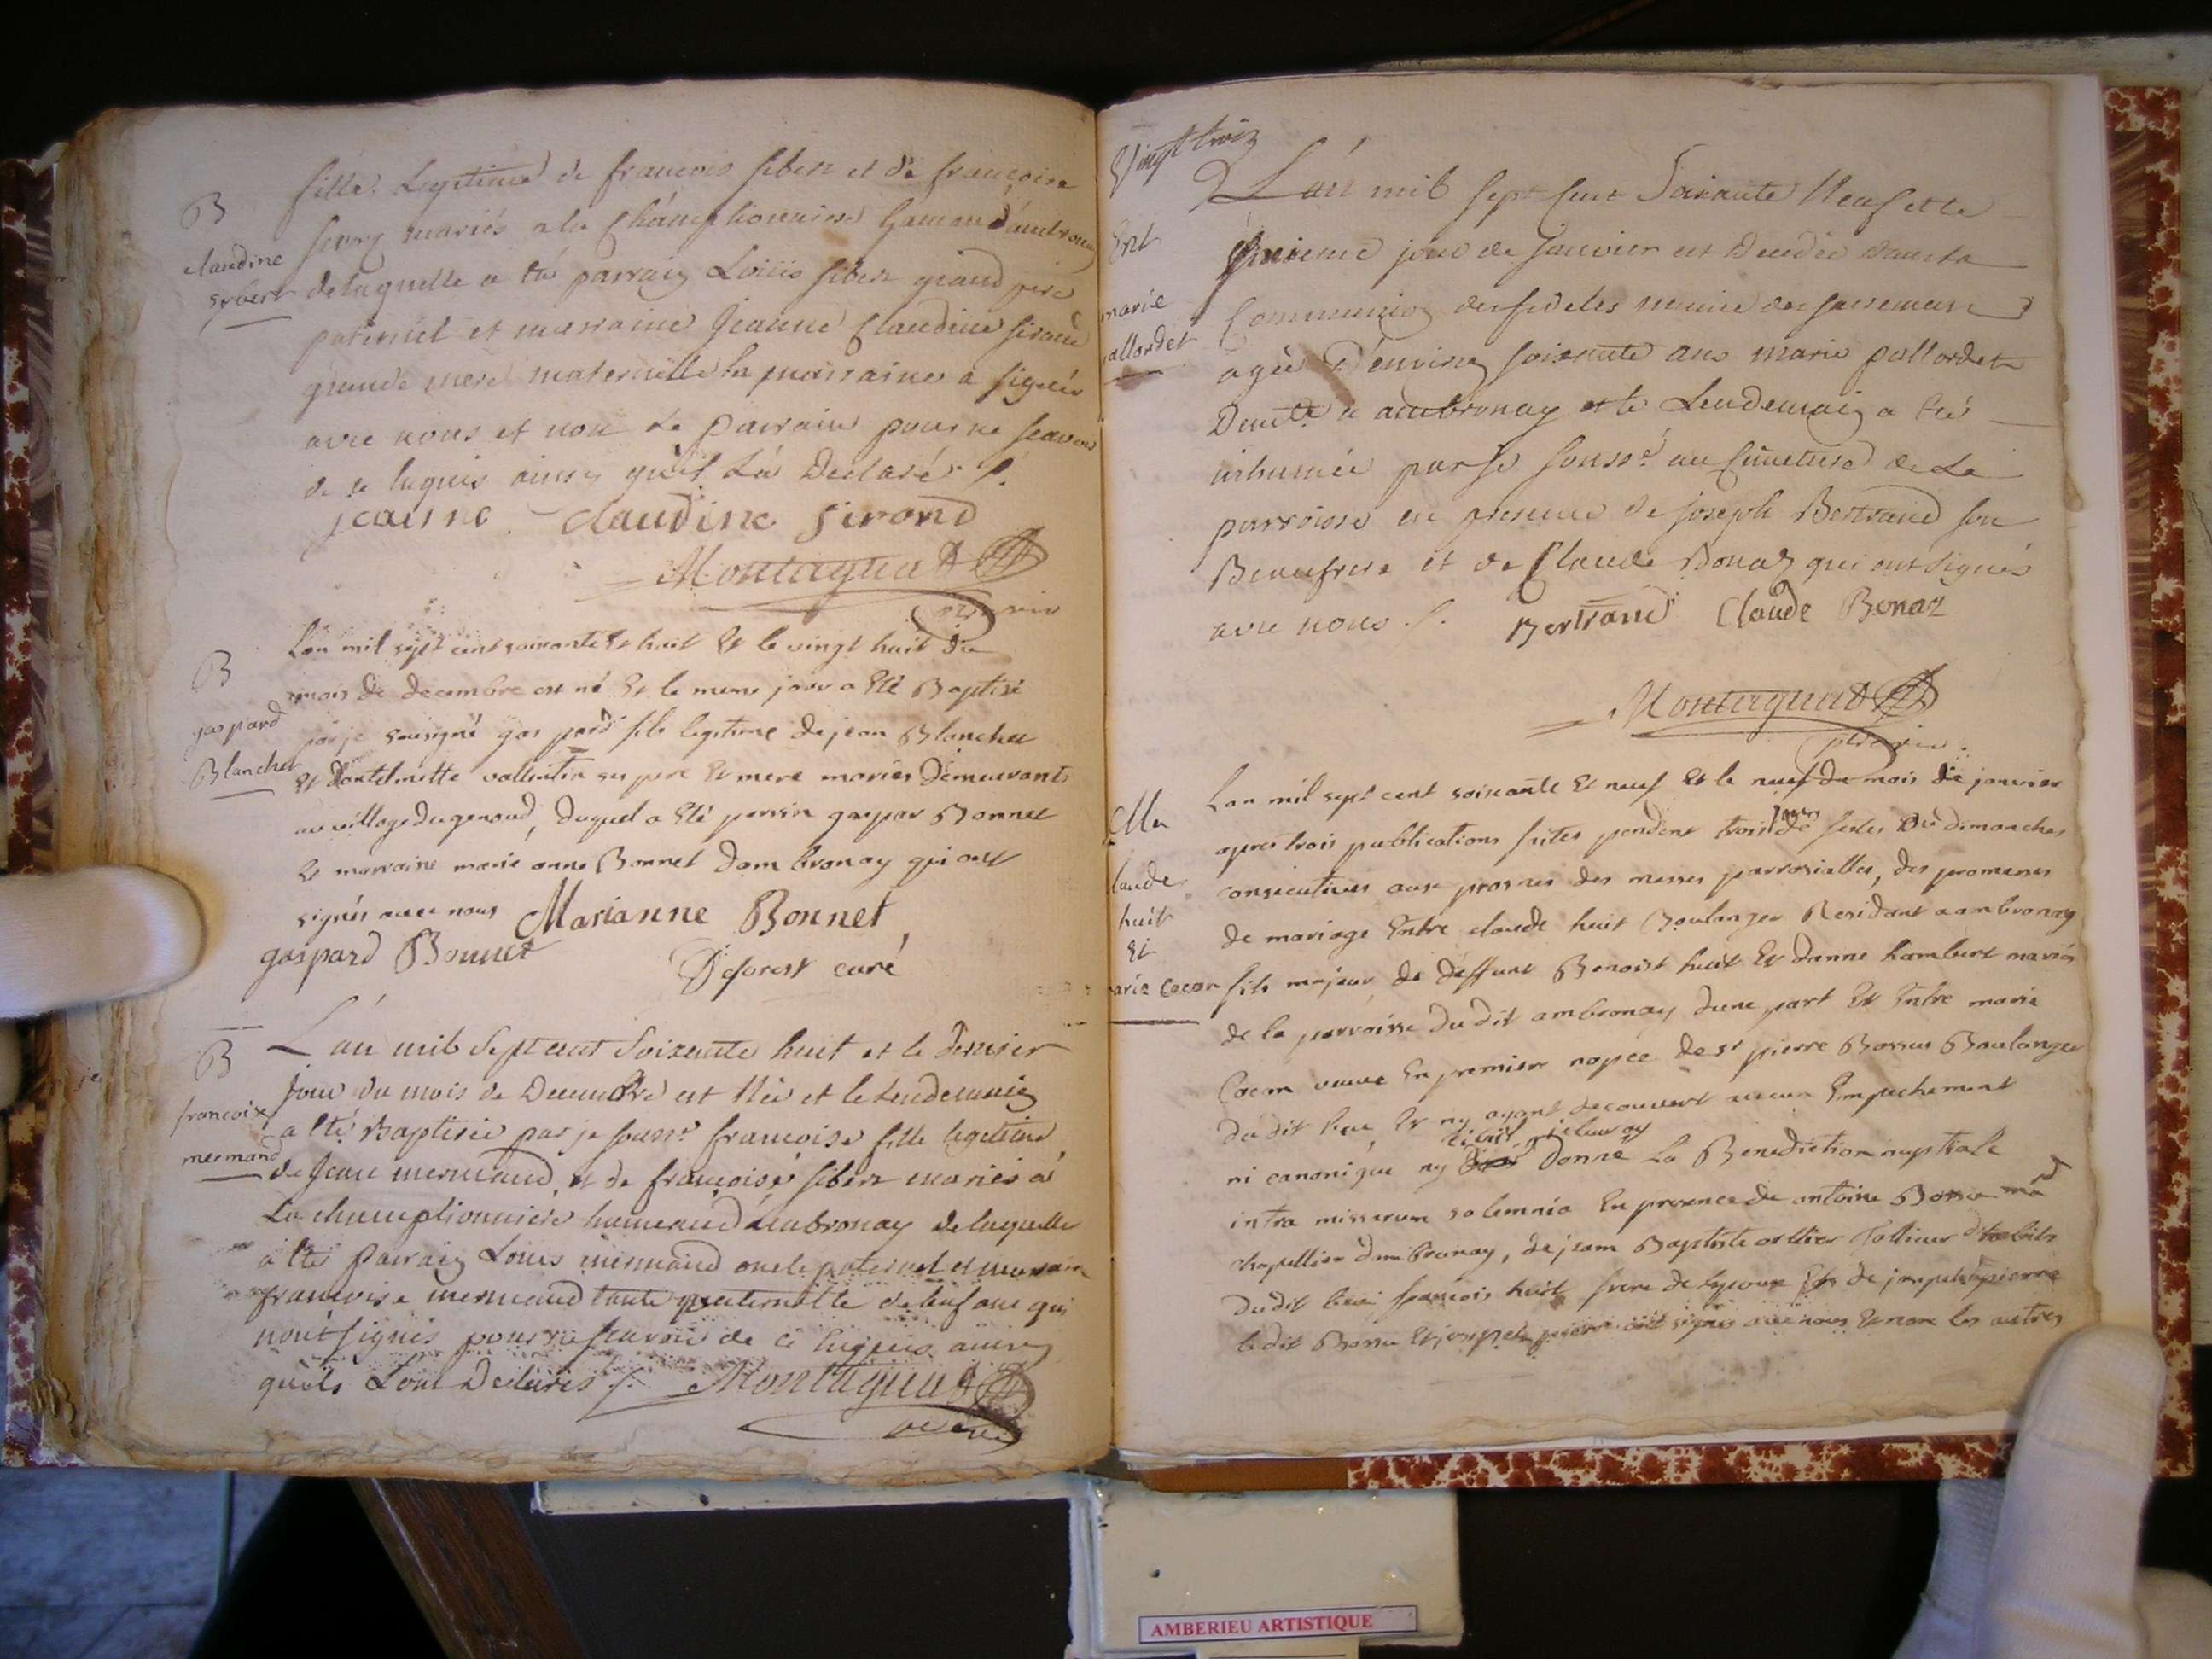 B
claudine
sybert
fille Legitime de francois sibert et de francoise
mariés a la Championniere hameau d'ambronay
de laquelle a eté parrain Loüis sibert grand pere
paternel et marraine Jeanne Claudine siroud
grande mere maternelle la marraine a signée
avec nous et non Le Parrain pour ne scavoir
de ce enquis ainsy qu'il L'a Declaré /.
jeanne claudine siroud
Montagnat
B
gaspard
Blanchet
Lan mil sept cent soixante Et huit Et le vingt huit du
mois de decembre est né Et le meme jour a Eté Baptisé
par je sousigné gaspard fils legitime de jean Blanchet
Et dantelmette vallentin ses pere Et mere mariés Demeurants
au village du genoud, duquel a Eté parrin gaspar Bonnet
Et marraine marie anne Bonnet dambronay qui ont
signés avec nous Marianne Bonnet
gaspard Bonnet
Deforest curé
B
francoise
mermand
L'an mil Sept cent Soixante huit et le dernier
jour du mois de Decembre est Née et le Lendemain
a eté Baptisée par je souss.é francoise fille legitime
de Jean mermand et de francoise sibert mariés a
La championniere hameau d'ambronay de laquelle
a eté Parrain Louis mermand oncle paternel et marraine
francoise mermand tante paternelle de lenfant qui
n'ont signés pour ne scavoir de ce Enquis ainsy
qu'ils L'ont Declarés /. Montagnat
Vingt trois
Ent
marie
pallordet
L'an mil sept Cent Soixante Neuf et le
jour de Janvier est Decedée dans la
Communion des fideles munie des sacremens
agée D'environ soixante ans marie pallordet
a ambronay et le Lendemain a eté
inhumée par je souss.é au Cimetiere de La
parroisse en presence de joseph Bertrand son
Beaufrere et de Claude Bonaz qui ont signés
avec nous /. Bertrand Claude Bonaz
Montagnat
Ma
laude
huit
Et
arie Cocon
Lan mil sept cent soixante Et neuf Et le neuf du mois de janvier
apres trois publications faites pendent trois jours de festes Ou dimanches
consecutives aux prosnes des messes parrossialles, des promesses
de mariage Entre claude huit Boulanger Residant a ambronay
fils majeur de deffunt Benoist huit Et danne humbert mariés
de la parroisse du dit ambronay dune part Et Entre marie
Cocon veuve En premiere nopce de sr pierre Bossu Boulanger
du dit lieu Et ny ayant decouvert aucun Empechement
ni canonique ny civil je leur ay Donné La Benediction nuptiale
intra missarum solemnia En presence de antoine Bossu md
chapellier dambronay, de jean Baptiste ollier Tallieur dhabits
du dit lieu francois huit frere de lepoux Et de joseph pierre
le dit Bossu Et joseph pierre ont signés avec nous Et non les autres
AMBERIEU ARTISTIQUE